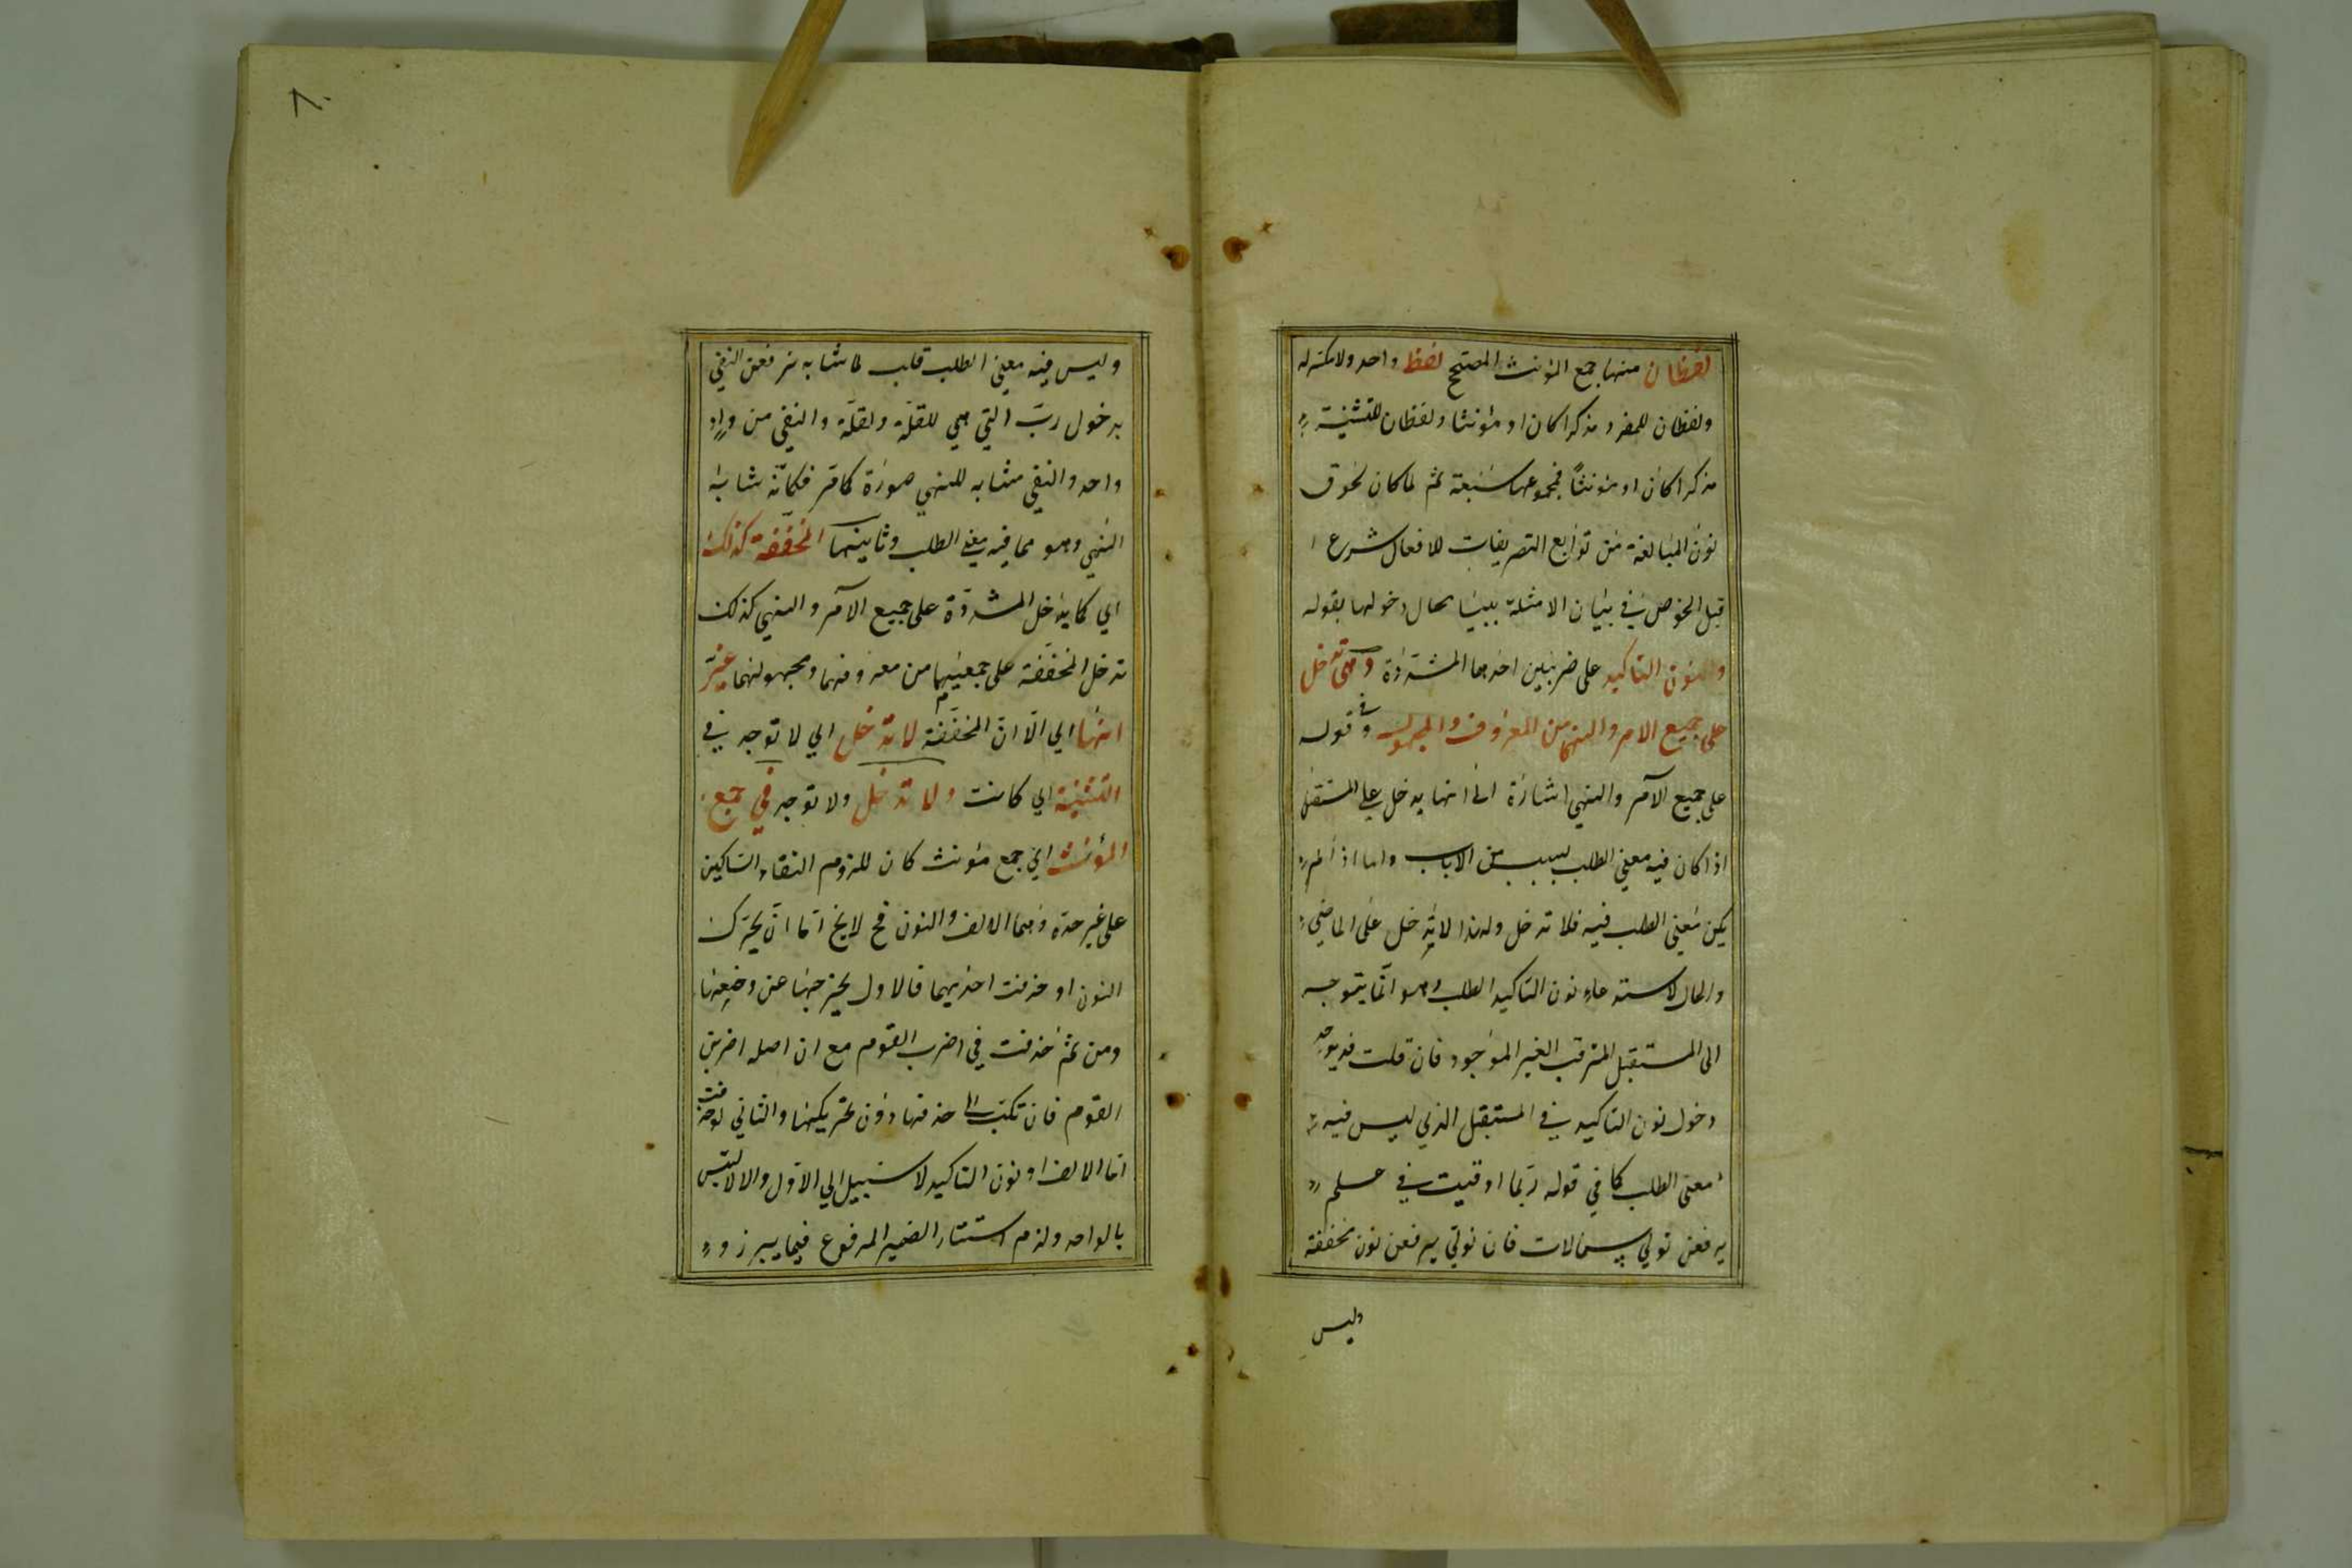 لفظان منها جمع المؤنث المصحح لفظ واحد ولامكنزله
ولفظان للمفرد مذكرا كان او مؤنثا ولفظان للتثنية
مذكرا كان او مؤنثا فمجموعها سبعة ثم لما كان لحوق
نون المبالغة من توابع التصريفات للافعال شرع
قبل الخوض في بيان الامثلة ببيان حال دخولها بقوله
والنون التأكيد على ضربين احدهما المشددة وهي تدخل
على جميع الامر والنهي من المعروف والمجهول وفي قوله
على جميع الامر والنهي اشارة الى انها يدخل على المستقبل
اذا كان فيه معنى الطلب بسبب من الاسباب واما اذا لم
يكن معنى الطلب فيه فلا تدخل ولهذا لا يدخل على الماضي
والحال لاستدعاء نون التاكيد الطلب وهو انما يتوجه
الى المستقبل المترقب الغير الموجود فان قلت قد يوجد
دخول نون التاكيد في المستقبل الذي ليس فيه
معنى الطلب كما في قوله ربما اوفيت في علم
يرفعن ثوبي شمالات فان نون يرفعن نون مخففة
وليس
٨٠
وليس فيه معنى الطلب قلب لما شابه يرفعن النفي
بدخول رب التي هي للقلة والقلة والنفي من واد
واحد والنفي مشابه للنهي صورة كما مر فكانه شابه
النهي وهو مما فيه معنى الطلب وثانيهما المخففة كذلك
اي كما يدخل المشددة على جميع الامر والنهي كذلك
تدخل المخففة على جمعيهما من معروفهما ومجهولهما غير
انها اي الا ان المخففة لا تدخل اي لا توجد في
التثنية اي كانت ولا تدخل ولا توجد في جمع
المؤنث اي جمع مؤنث كان للزوم التقاء الساكنين
على غير حده وهما الالف والنون فح لايخ اما ان يحرك
النون او حذفت احديهما فالاول يخرجها عن وضعها
ومن ثم حذفت في اضرب القوم مع ان اصله اضربن
القوم فان نكتب حذفها دون تحريكها والثاني لو حذفت
اما الالف او نون التاكيد لا سبيل الى الاول والا لالتبس
بالواحد ولزم استتار الضمير المرفوع فيما يبرز و